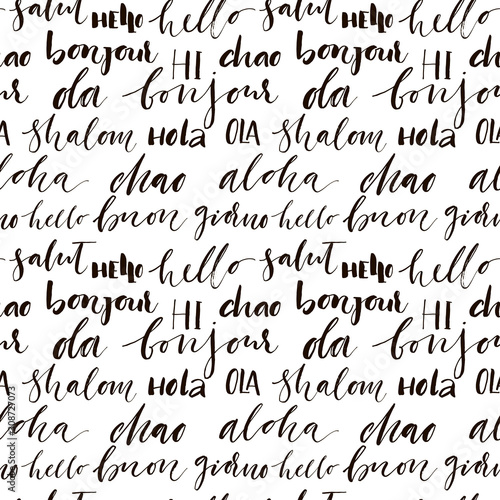 salut HELLO hello salut HELLO hello
ao bonjour HI chao bonjour HI chao
ur da bonjour da bonjour
LA shalom Hola OLA shalom Hola OLA
aloha chao aloha chao a
no hello buon giorno hello buon giorno
salut HELLO hello salut HELLO hello
ao bonjour HI chao bonjour HI chao
ur da bonjour da bonjour
LA shalom Hola OLA shalom Hola OLA
aloha chao aloha chao a
no hello buon giorno hello buon giorno